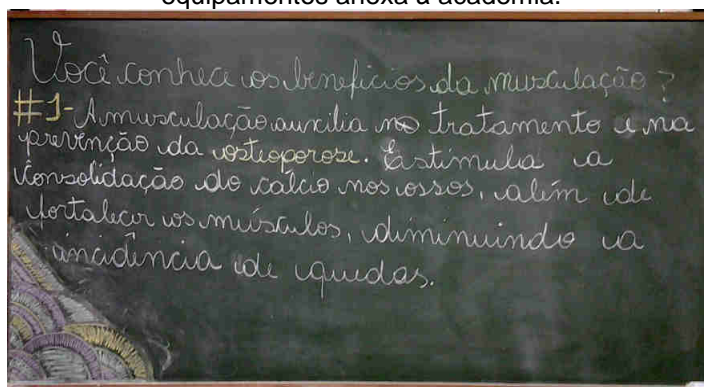 equipamentos anexa à academia.
Você conhece os benefícios da musculação?
#1- A musculação auxilia no tratamento e na
prevenção da osteoporose. Estimula a
consolidação do cálcio nos ossos, além de
fortalecer os músculos, diminuindo a
incidência de quedas.